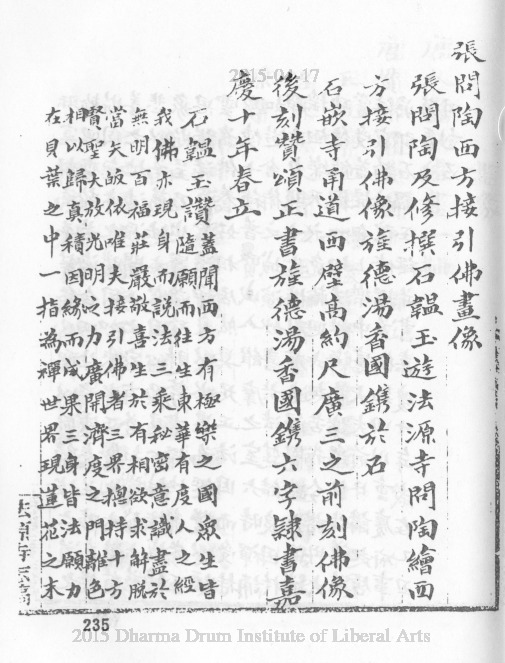 張問陶西方接引佛畫像
張問陶及修撰石韞玉遊法源寺問陶繪西
方接引佛像旌德湯香國鐫於石
石嵌寺甬道西壁高約尺廣三之前刻佛像
後刻贊頌正書旌德湯香國鐫六字隸書嘉
慶十年春立
石韞玉讚蓋聞西方有極樂之國眾生皆
隨願而往生東華有度人之經
我佛亦現身而說法三乘秘密意識盡於
無明百福莊嚴敬喜生於有相欲求解脫
當矢皈依唯夫接引佛者三界總持十方
賢聖大放光明之力廣開濟度之門離色
相以歸真積因緣而成果三身皆法願力
在貝葉之中一指為禪世界現蓮花之末
法源寺志稿
235
2015-04-17
2015 Dharma Drum Institute of Liberal Arts